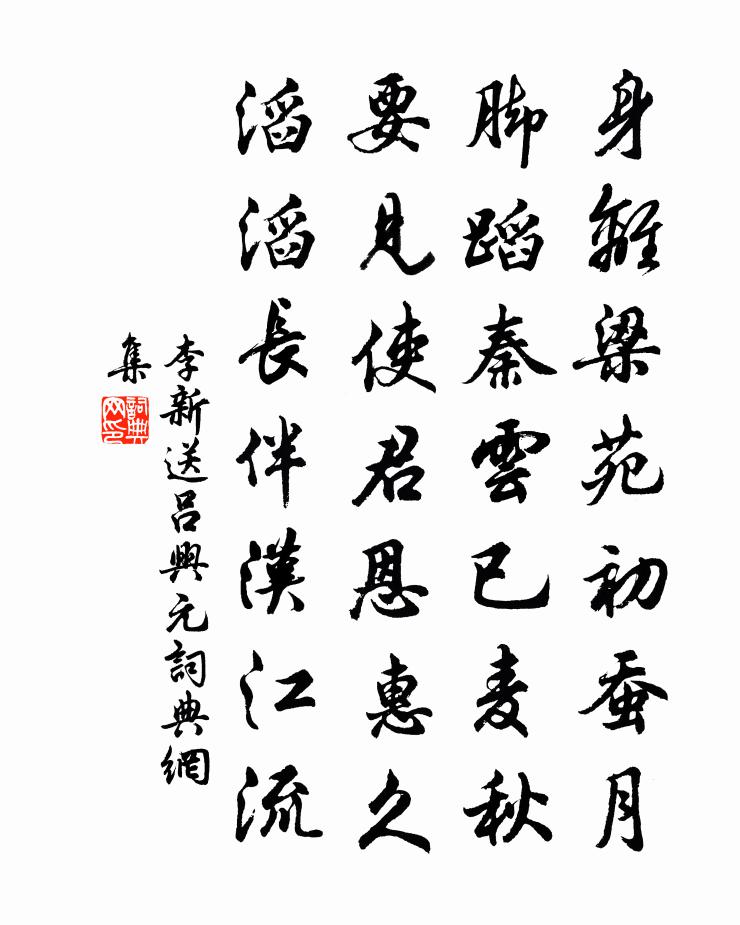 身離梁苑初蚕月
脚蹈秦雲已麦秋
要見使君恩惠久
滔滔長伴漢江流
李新送呂興元詞典網
集
詞典
网印